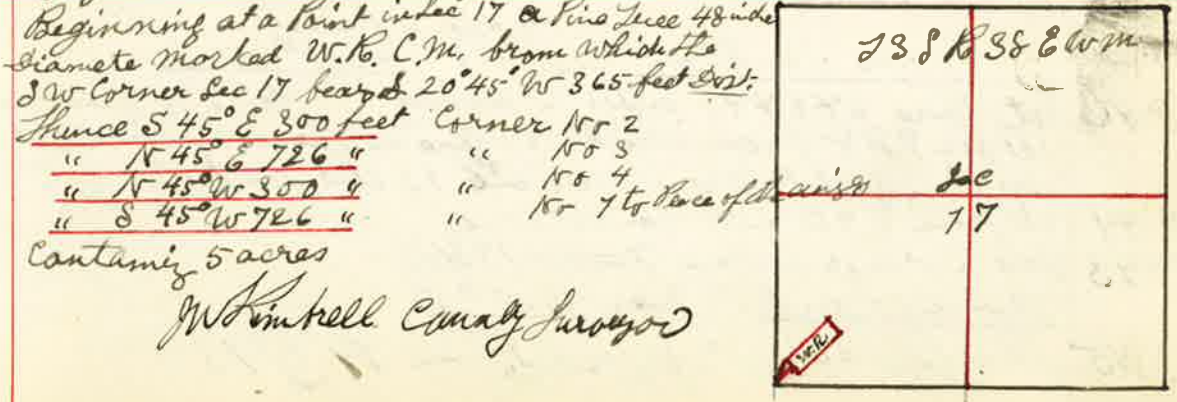 Beginning at a Point in Sec 17 a Pine Tree 48 inche
Diamete Marked W.R. C.M. from which the
S W Corner Sec 17 bears S 20° 45° W 365 feet Dist.
Thence S 45° E 300 feet Corner No 2
" N 45° E 726 " " No 3
" N 45° W 300 " " No 4
" S 45° W 726 " " No 1 to Place of
Containig 5 acres
JW Kimbrell County Surveyor
T 3 S R 35 E W M
Sec
17
W.R.